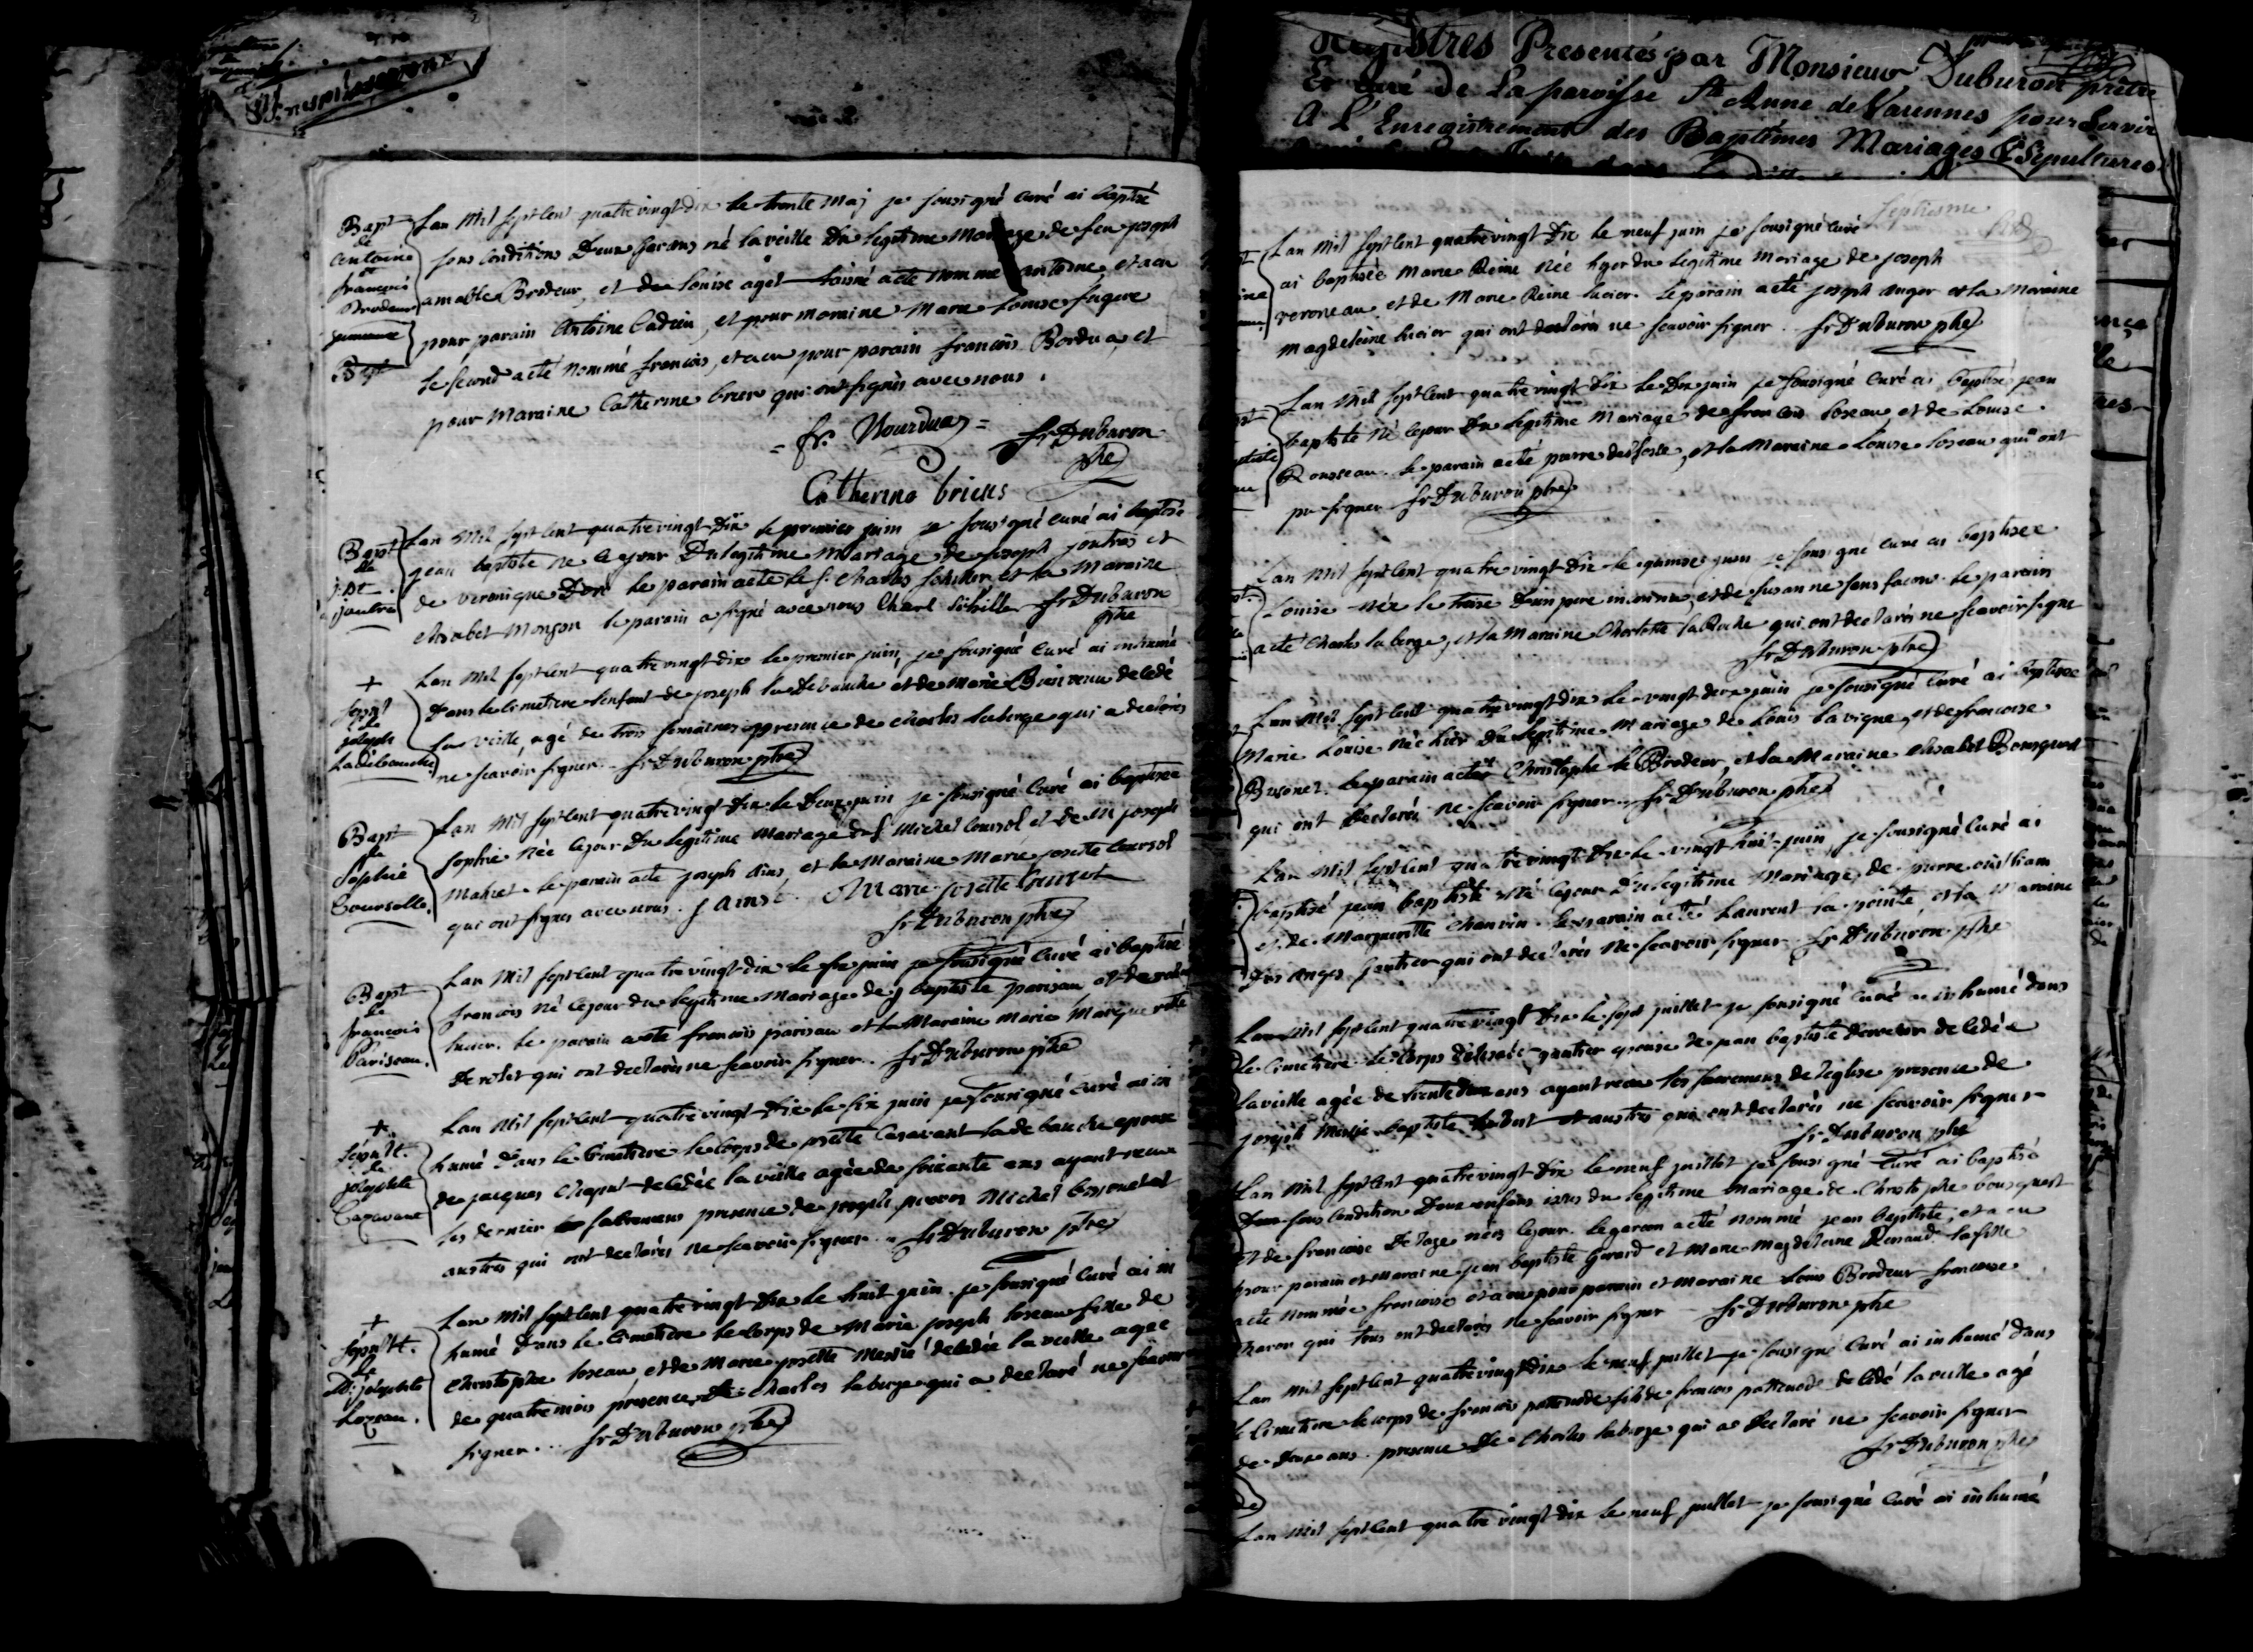 Registres Presentés par Monsieur Duburon prêtre
Et Curé de La paroisse Ste Anne de Varennes pour Servir
A L'Enregistrement des Baptêmes Mariages & Sépultures
Bapt
de
Antoine
et
françois
Brodeur
jumeaux
Bapt
Lan Mil sept cent quatre vingt dix le trente Maj je sousigné Curé ai baptisé
sous conditions Deux garçons né la veille Du legitime Mariage de feu joseph
amable Brodeur, et de Louise aget lainé a eté nommé antoine, et a eu
pour parain Antoine Cadieu, et pour maraine Marie Louise fugere
le second a eté nommé françois, et a eu pour parain françois Bordua, et
pour Maraine Catherine brien qui ont signés avec nous.
= fr. Bourdua = fr Duburon
ptre
Catherine briens
Bapt
de
j. Bt.
joutra
Lan Mil sept cent quatre vingt Dix le premier juin je sousigné curé ai baptisé
jean baptiste né ce jour Du legitime Mariage de joseph joutras et
de veronique Dore le parain a eté le Sr. Charles Schiller et la Maraine
Elisabet Mongon le parain a signé avec nous Charl Schiller fr Duburon
ptre
+
sépult
de
joseph
Ladébauche
Lan Mil sept cent quatre vingt dix le premier juin, je sousigné Curé ai inhumé
Dans le Cimetiere l'enfant de joseph la Debauche et de Marie Bienvenu decedé
la veille, agé de trois semaines presence de charles laberge qui a declarés
ne scavoir signer. fr Duburon ptre
Bapt
de
Sophie
Coursolle.
Lan Mil sept cent quatre vingt dix le Deux juin je sousigné Curé ai baptisée
sophie née ce jour Du legitime Mariage de Sr Michel Coursol et de M joseph
Malret le parain a eté joseph Ains, et la Maraine Marie josette Coursol
qui ont signés avec nous. J Ainse. Marie josette Coursol
fr Duburon ptre
Bapt
de
françois
Pariseau.
Lan Mil sept cent quatre vingt dix le six juin je sousigné Curé ai baptisé
françois né ce jour du legitime Mariage de j baptiste parisau et de
lucier. le parain a eté françois parisau et la Maraine Marie Marguerite
qui ont declarés ne scavoir signer. fr Duburon ptre
+
sépult.
de
josephte
Cazavant
Lan Mil sept cent quatre vingt dix le six juin je sousigné Curé ai in
humé Dans le Cimetiere le corps de josette Casavant la debauche epouse
de jacques Chaput decedée la veille agée de soixante ans ayant recu
les dernier sacremens presence de joseph Michel bissonet et
austres qui ont declarés ne scavoir signer. fr Duburon ptre
+
sépult.
de
M. josephte
Lozeau.
Lan Mil sept cent quatre vingt dix le huit juin je sousigné Curé ai in
humé Dans le Cimetiere le corps de Marie joseph loseau fille de
Christophe loseau, et de Marie josette Messié decedée la veille agée
de quatre mois presence de charles laberge qui a declaré ne scavoir
signer... fr Duburon ptre
septiesme
Lan Mil sept cent quatre vingt Dix le neuf juin je sousigné Curé
ai baptisée Marie Reine née hyer du legitime Mariage de joseph
veroneau, et de Marie Reine lucier. le parain a eté joseph auger et la Maraine
Magdeleine lucier qui ont declarés ne scavoir signer. fr Duburon ptre
Lan Mil sept cent quatre vingt dix le Dix juin je sousigné Curé ai baptisé jean
baptiste Né ce jour Du legitime Mariage de francois loseau et de Louise
Rousseau. le parain a eté pierre et la Maraine Louise loseau qui ont
pu signer fr Duburon ptre
Lan Mil sept cent quatre vingt Dix le quinze juin je sousigné curé ai baptisée
Louise née le treise D'un pere inconnu, et de susanne sans facon. le parain
a eté Charles laberge, et la Maraine Charlotte laRoche qui ont declarés ne scavoir signer
fr Duburon ptre
Lan Mil sept cent quatre vingt dix le vingt deux juin je sousigné Curé ai baptisée
Marie Louise née hier Du legitime Mariage de Louis lavigne, et de francoise
Bisonet. le parain a eté Christophe le Brodeur, et la Maraine elisabet Bousquet
qui ont declarés ne scavoir signer. fr Duburon ptre
Lan Mil sept cent quatre vingt dix le vingt huit juin, je sousigné Curé ai
baptisé jean baptiste né ce jour Du legitime Mariage de pierre
et de Marguerite Chauvin. le parain a eté Laurent la pointe et la Maraine
Des anges gautier qui ont declarés ne scavoir signer. fr Duburon ptre
Lan Mil sept cent quatre vingt Dix le sept juillet je sousigné Curé ai inhumé dans
le Cimetiere le corps gautier epouse de jean baptiste decedée
la veille agée de trente deux ans ayant recu les sacremens de l'eglise presence de
joseph Messié baptiste et austres qui ont declarés ne scavoir signer
fr Duburon ptre
Lan Mil sept cent quatre vingt dix le neuf juillet je sousigné Curé ai baptisé
sous condition Deux enfans issus du legitime Mariage de Christophe bousquet
et de francoise Delage nés ce jour. le garcon a eté nommé jean baptiste, et a eu
pour parain et Maraine jean baptiste Girard et Marie Magdeleine Renaud. la fille
a eté nommée francoise et a eu pour parain et maraine Louis Brodeur francoise
charon qui tous ont declarés ne scavoir signer fr Duburon ptre
Lan Mil sept cent quatre vingt Dix le neuf juillet je sousigné Curé ai inhumé dans
le Cimetiere le corps de francois patenode fils de francois patenode decedé la veille agé
de deux ans. presence de Charles laberge qui a declaré ne scavoir signer
fr Duburon ptre
Lan Mil sept cent quatre vingt dix le neuf juillet je sousigné Curé ai inhumé